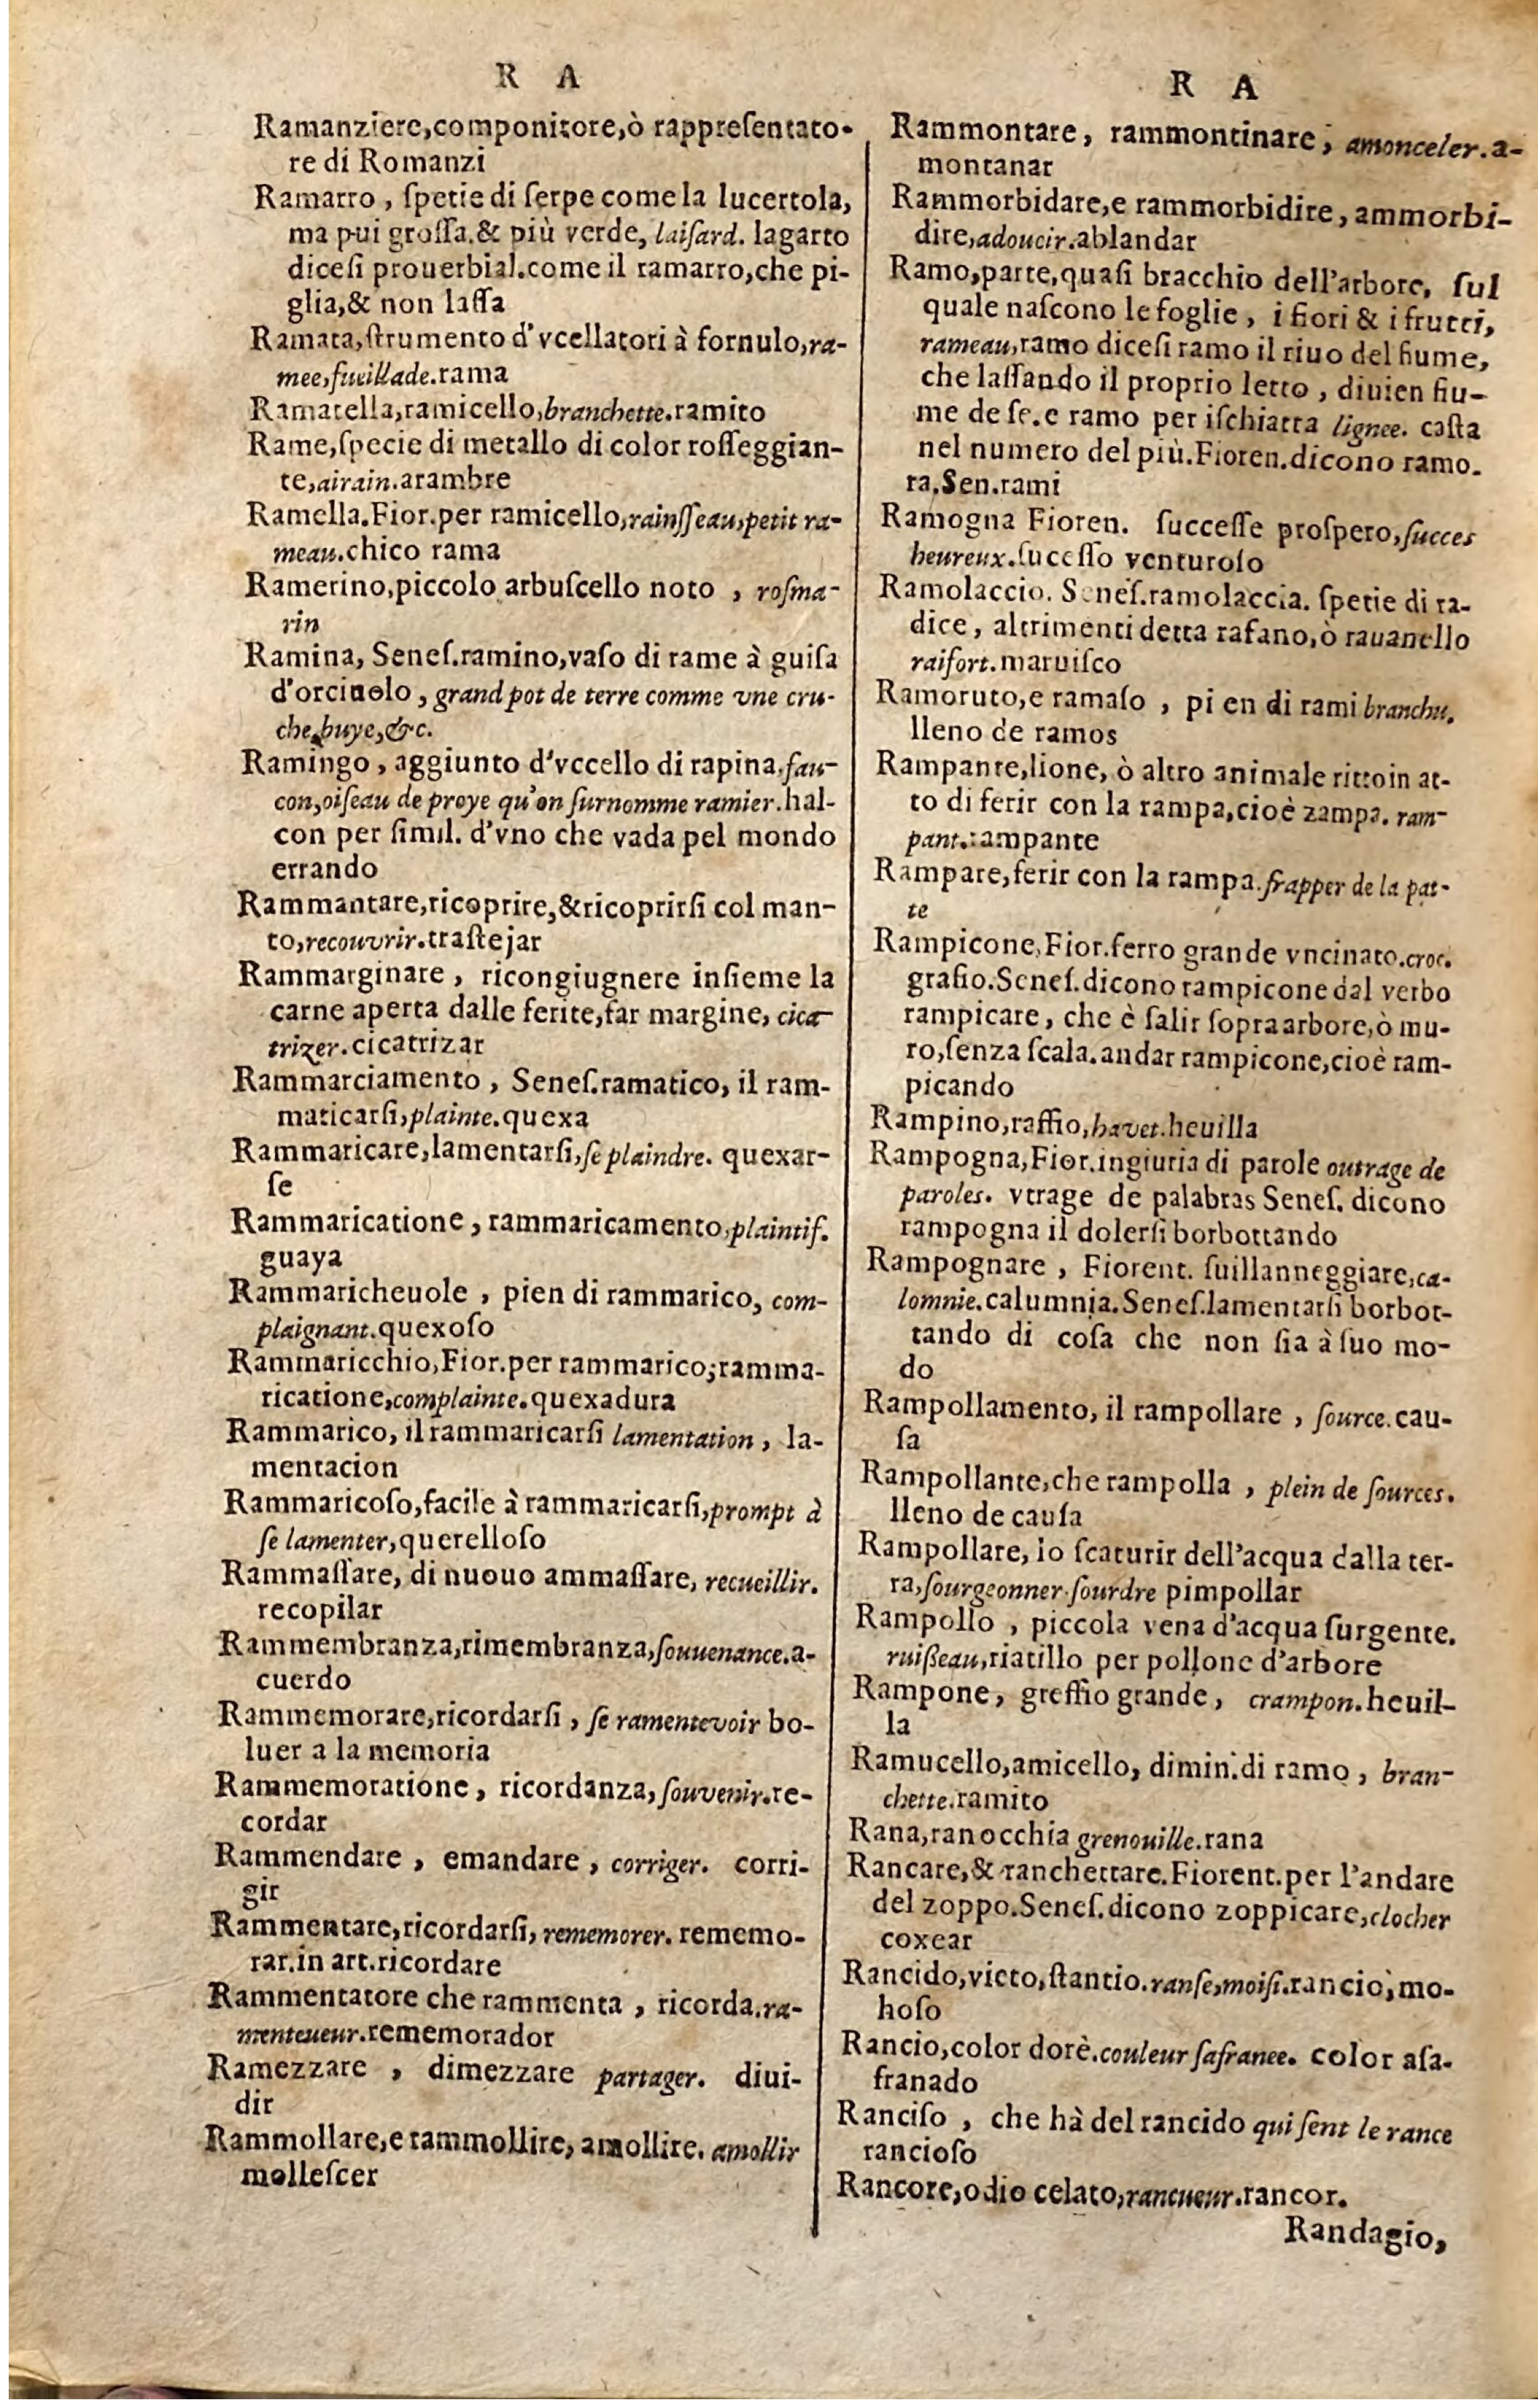 R A
Ramanziere,componitore,ò rappreſentato-
re di Romanzi
Ramarro , ſpetie di ſerpe come la lucertola,
ma pui groſſa.& più verde, laiſard. lagarto
diceſi prouerbial.come il ramarro,che pi-
glia,& non laſſa
Ramata,ſtrumento d'vcellatori à fornulo,ra-
mee,fueillade.rama
Ramatella,ramicello,branchette.ramito
Rame,ſpecie di metallo di color roſſeggian-
te,airain.arambre
Ramella.Fior.per ramicello,rainſſeau,petit ra-
meau.chico rama
Ramerino,piccolo arbuſcello noto , roſma-
rin
Ramina, Seneſ.ramino,vaſo di rame à guiſa
d'orciuolo , grand pot de terre comme vne cru-
che,buye,&c.
Ramingo , aggiunto d'vccello di rapina,fau-
con,oiſeau de proye qu'on ſurnomme ramier.hal-
con per ſimil. d'vno che vada pel mondo
errando
Rammantare,ricoprire,&ricoprirſi col man-
to,recouvrir.traſtejar
Rammarginare , ricongiugnere inſieme la
carne aperta dalle ferite,far margine, cica-
trizer.cicatrizar
Rammarciamento , Seneſ.ramatico, il ram-
maticarſi,plainte.quexa
Rammaricare,lamentarſi,ſe plaindre. quexar-
ſe
Rammaricatione , rammaricamento,plaintif.
guaya
Rammaricheuole , pien di rammarico, com-
plaignant.quexoſo
Rammaricchio,Fior.per rammarico;ramma-
ricatione,complainte.quexadura
Rammarico, il rammaricarſi lamentation , la-
mentacion
Rammaricoſo,facile à rammaricarſi,prompt à
ſe lamenter,querelloſo
Rammaſſare, di nuouo ammaſſare, recueillir.
recopilar
Rammembranza,rimembranza,ſouuenance.a-
cuerdo
Rammemorare,ricordarſi , ſe ramentevoir bo-
luer a la memoria
Rammemoratione , ricordanza,ſouvenir.re-
cordar
Rammendare , emandare , corriger. corri-
gir
Rammentare,ricordarſi, rememorer. rememo-
rar.in art.ricordare
Rammentatore che rammenta , ricorda.ra-
menteueur.rememorador
Ramezzare , dimezzare partager. diui-
dir
Rammollare,e rammollire, amollire. amollir
molleſcer
R A
Rammontare, rammontinare, amonceler.a-
montanar
Rammorbidare,e rammorbidire, ammorbi-
dire,adoucir.ablandar
Ramo,parte,quaſi bracchio dell'arbore, ſul
quale naſcono le foglie , i fiori & i frutti,
rameau,ramo diceſi ramo il riuo del fiume,
che laſſando il proprio letto , diuien fiu-
me de ſe.e ramo per iſchiatta lignee. caſta
nel numero del più.Fioren.dicono ramo-
ra.Sen.rami
Ramogna Fioren. ſucceſſe proſpero,ſucces
heureux.ſuceſſo venturoſo
Ramolaccio. Seneſ.ramolaccia. ſpetie di ra-
dice , altrimenti detta rafano,ò rauanello
raifort.maruiſco
Ramoruto,e ramaſo , pi en di rami branchu.
lleno de ramos
Rampante,lione, ò altro animale ritto in at-
to di ferir con la rampa,cioè zampa. ram-
pant.rampante
Rampare,ferir con la rampa.frapper de la pat-
te
Rampicone,Fior.ferro grande vncinato.croc.
grafio.Seneſ.dicono rampicone dal verbo
rampicare, che è ſalir ſopra arbore,ò mu-
ro,ſenza ſcala.andar rampicone,cioè ram-
picando
Rampino,raffio,havet.heuilla
Rampogna,Fior.ingiuria di parole outrage de
paroles. vtrage de palabras Seneſ. dicono
rampogna il dolerſi borbottando
Rampognare , Fiorent. ſuillanneggiare,ca-
lomnie.calumnia.Seneſ.lamentarſi borbot-
tando di coſa che non ſia à ſuo mo-
do
Rampollamento, il rampollare , ſource.cau-
ſa
Rampollante,che rampolla , plein de ſources.
lleno de cauſa
Rampollare, lo ſcaturir dell'acqua dalla ter-
ra,ſourgeonner ſourdre pimpollar
Rampollo , piccola vena d'acqua ſurgente.
ruiſſeau,riatillo per pollone d'arbore
Rampone, greffio grande, crampon.heuil-
la
Ramucello,amicello, dimin.di ramo , bran-
chette.ramito
Rana,ranocchia grenouille.rana
Rancare,& ranchettare.Fiorent.per l'andare
del zoppo.Seneſ.dicono zoppicare,clocher
coxear
Rancido,vieto,ſtantio.ranſe,moiſi.rancio,mo-
hoſo
Rancio,color dorè.couleur ſafranee. color aſa-
franado
Ranciſo , che hà del rancido qui ſent le rance
rancioſo
Rancore,odio celato,rancueur.rancor.
Randagio,